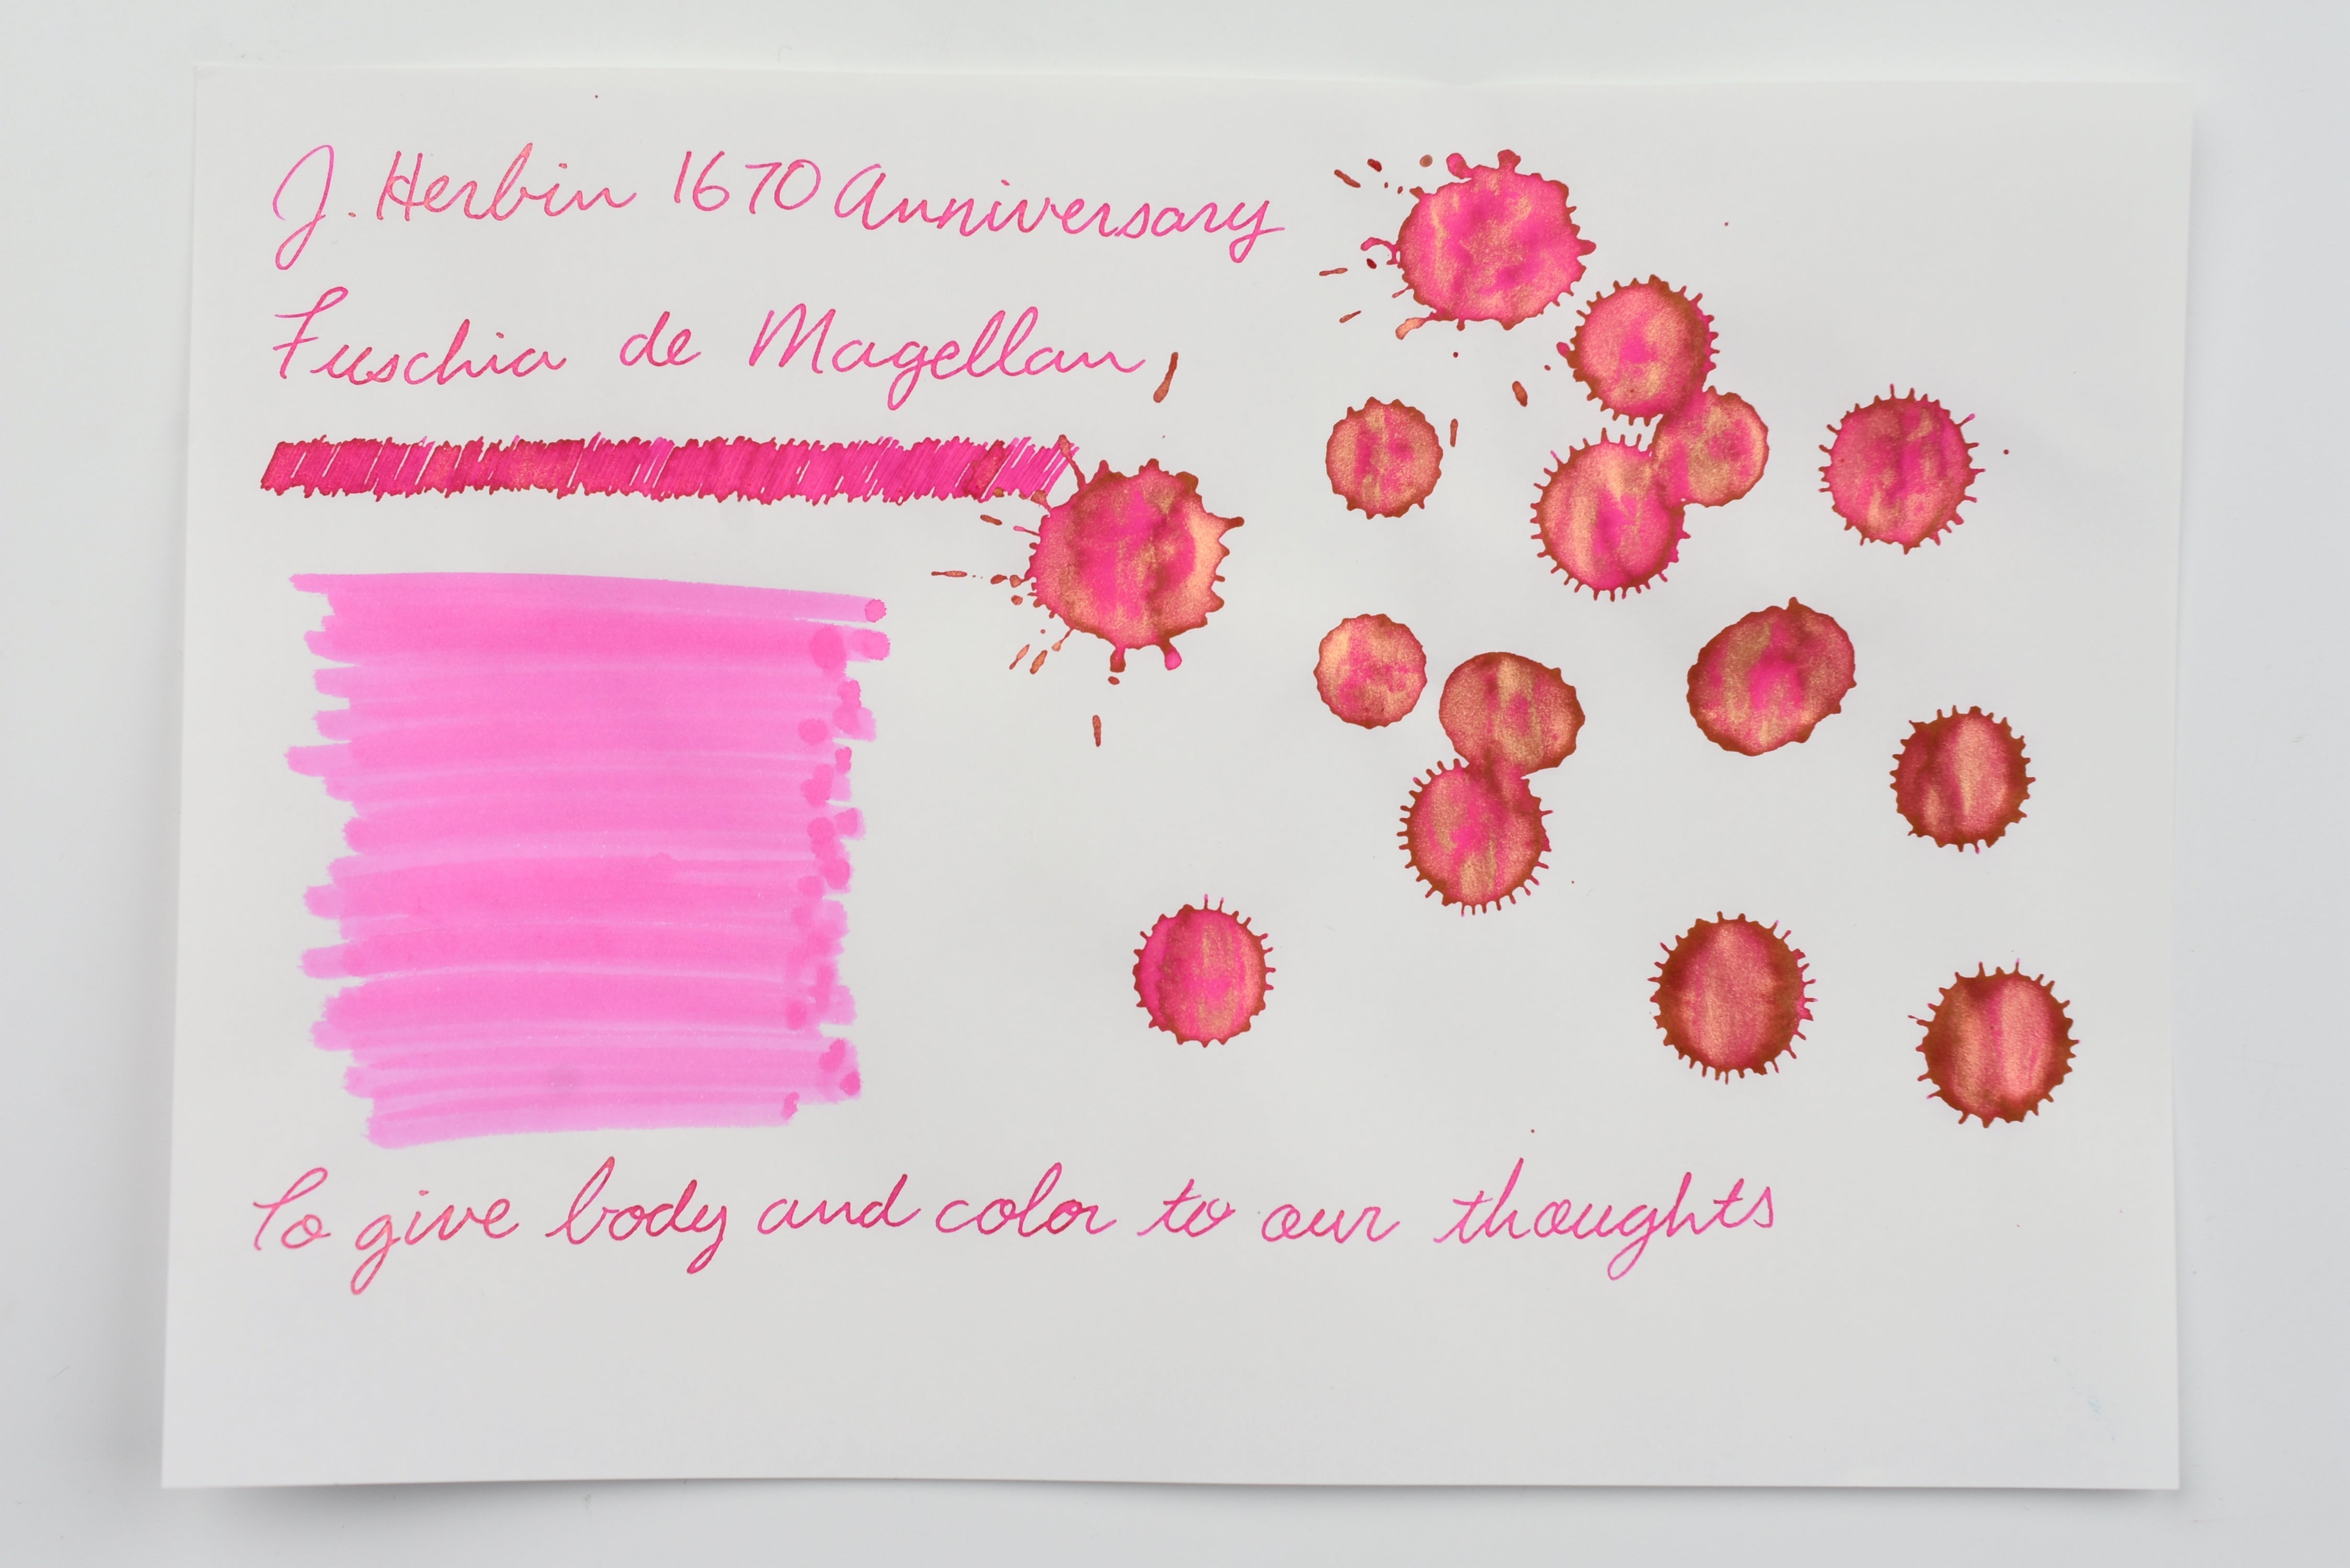 J. Herbin 1670 Anniversary
Fuschia de Magellan
To give body and color to our thoughts